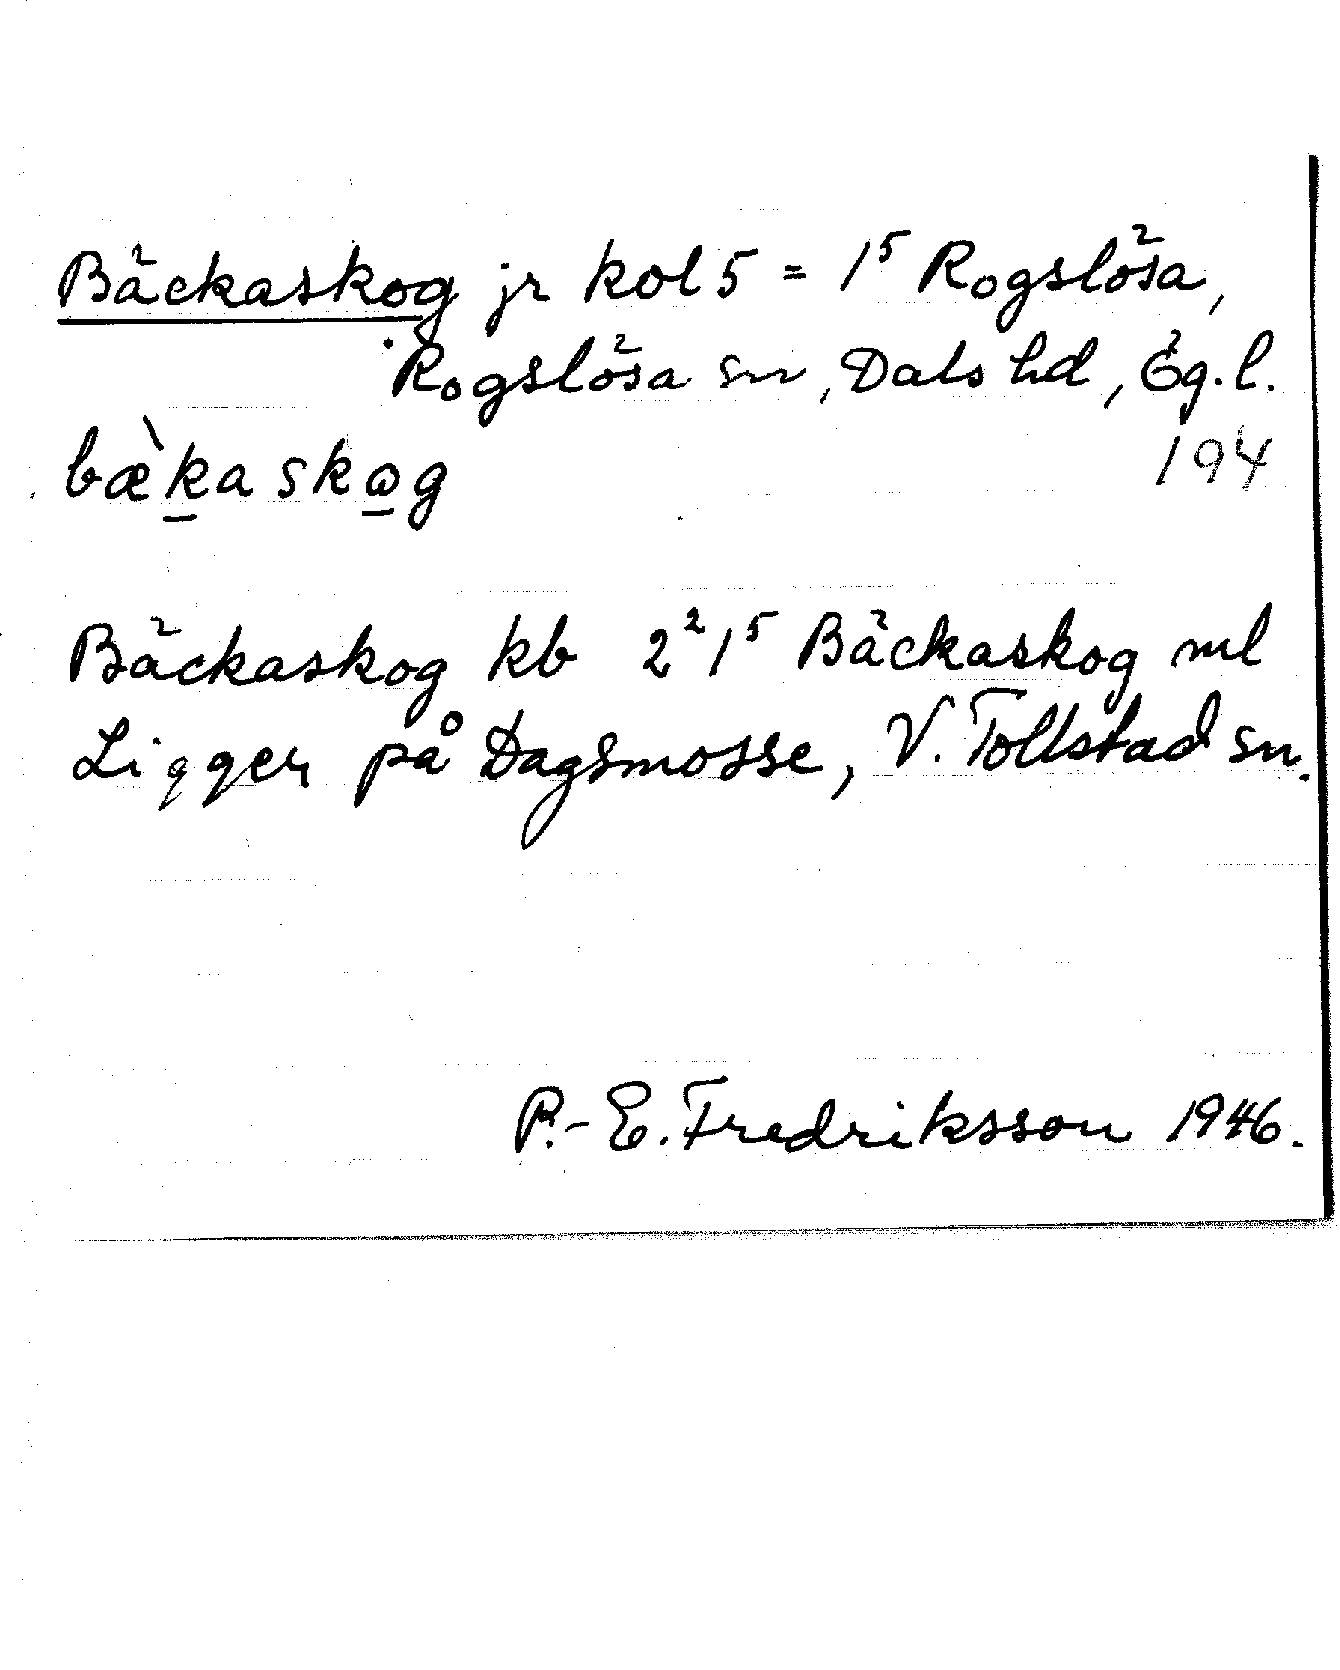 Bäckaskog jr kol 5 = 1⁵ Rogslösa,
Rogslösa sn, Dals hd, Ög.l.
bæ̀k̲askɷ̲g 194
Bäckaskog kb 2² 1⁵ Bäckaskog ml
Ligger på Dagsmosse, V. Tollstad sn.
P.-E. Fredriksson 1946.